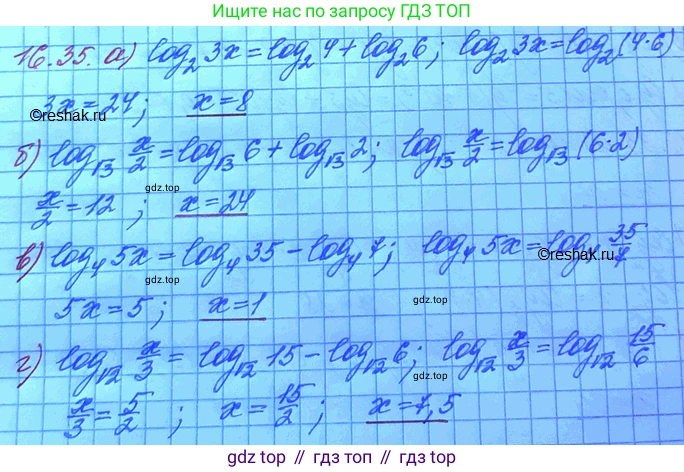 Ищите нас по запросу ГДЗ ТОП
16.35. а) log₂ 3x = log₂ 4 + log₂ 6; log₂ 3x = log₂ (4·6)
3x = 24; x = 8
©reshak.ru
б) log√13 x/2 = log√13 6 + log√13 2; log√13 x/2 = log√13 (6·2)
gdz.top
x/2 = 12; x = 24
gdz.top
в) log₄ 5x = log₄ 35 - log₄ 7; log₄ 5x = log₄ 35/7
©reshak.ru
gdz.top
5x = 5; x = 1
gdz.top
г) log√12 x/3 = log√12 15 - log√12 6; log√12 x/3 = log√12 15/6
gdz.top
gdz.top
x/3 = 5/2; x = 15/2; x = 7,5
gdz top // гдз топ // gdz top